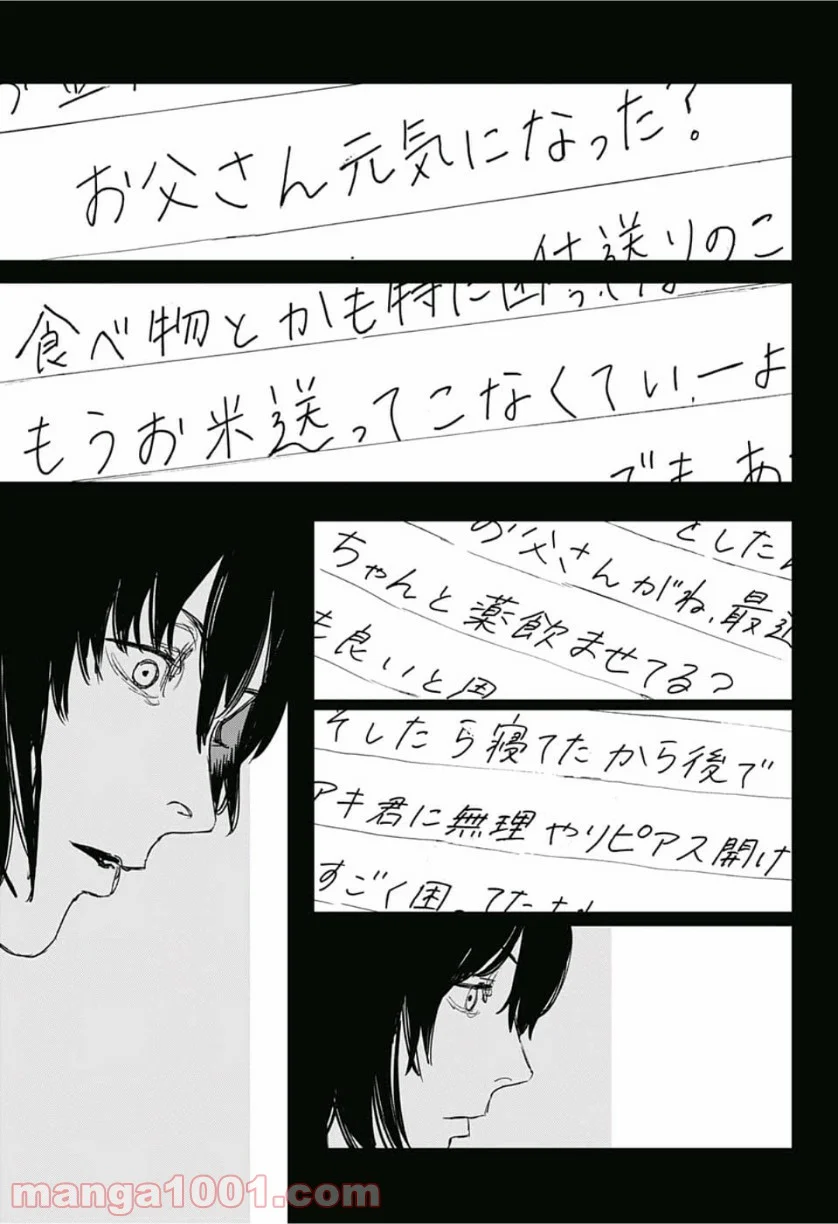 お父さん元気になった?
仕送りのこ
食べ物とかも特に困ってな
もうお米送ってこなくてい、ーよ
でも、あ
としたん
お父さんがね、最近
ちゃんと薬飲ませてるつ
も良いと思
そしたら寝てたから後で
アキ君に無理やりピアス開け
すごく困ってたな
manga1001.com